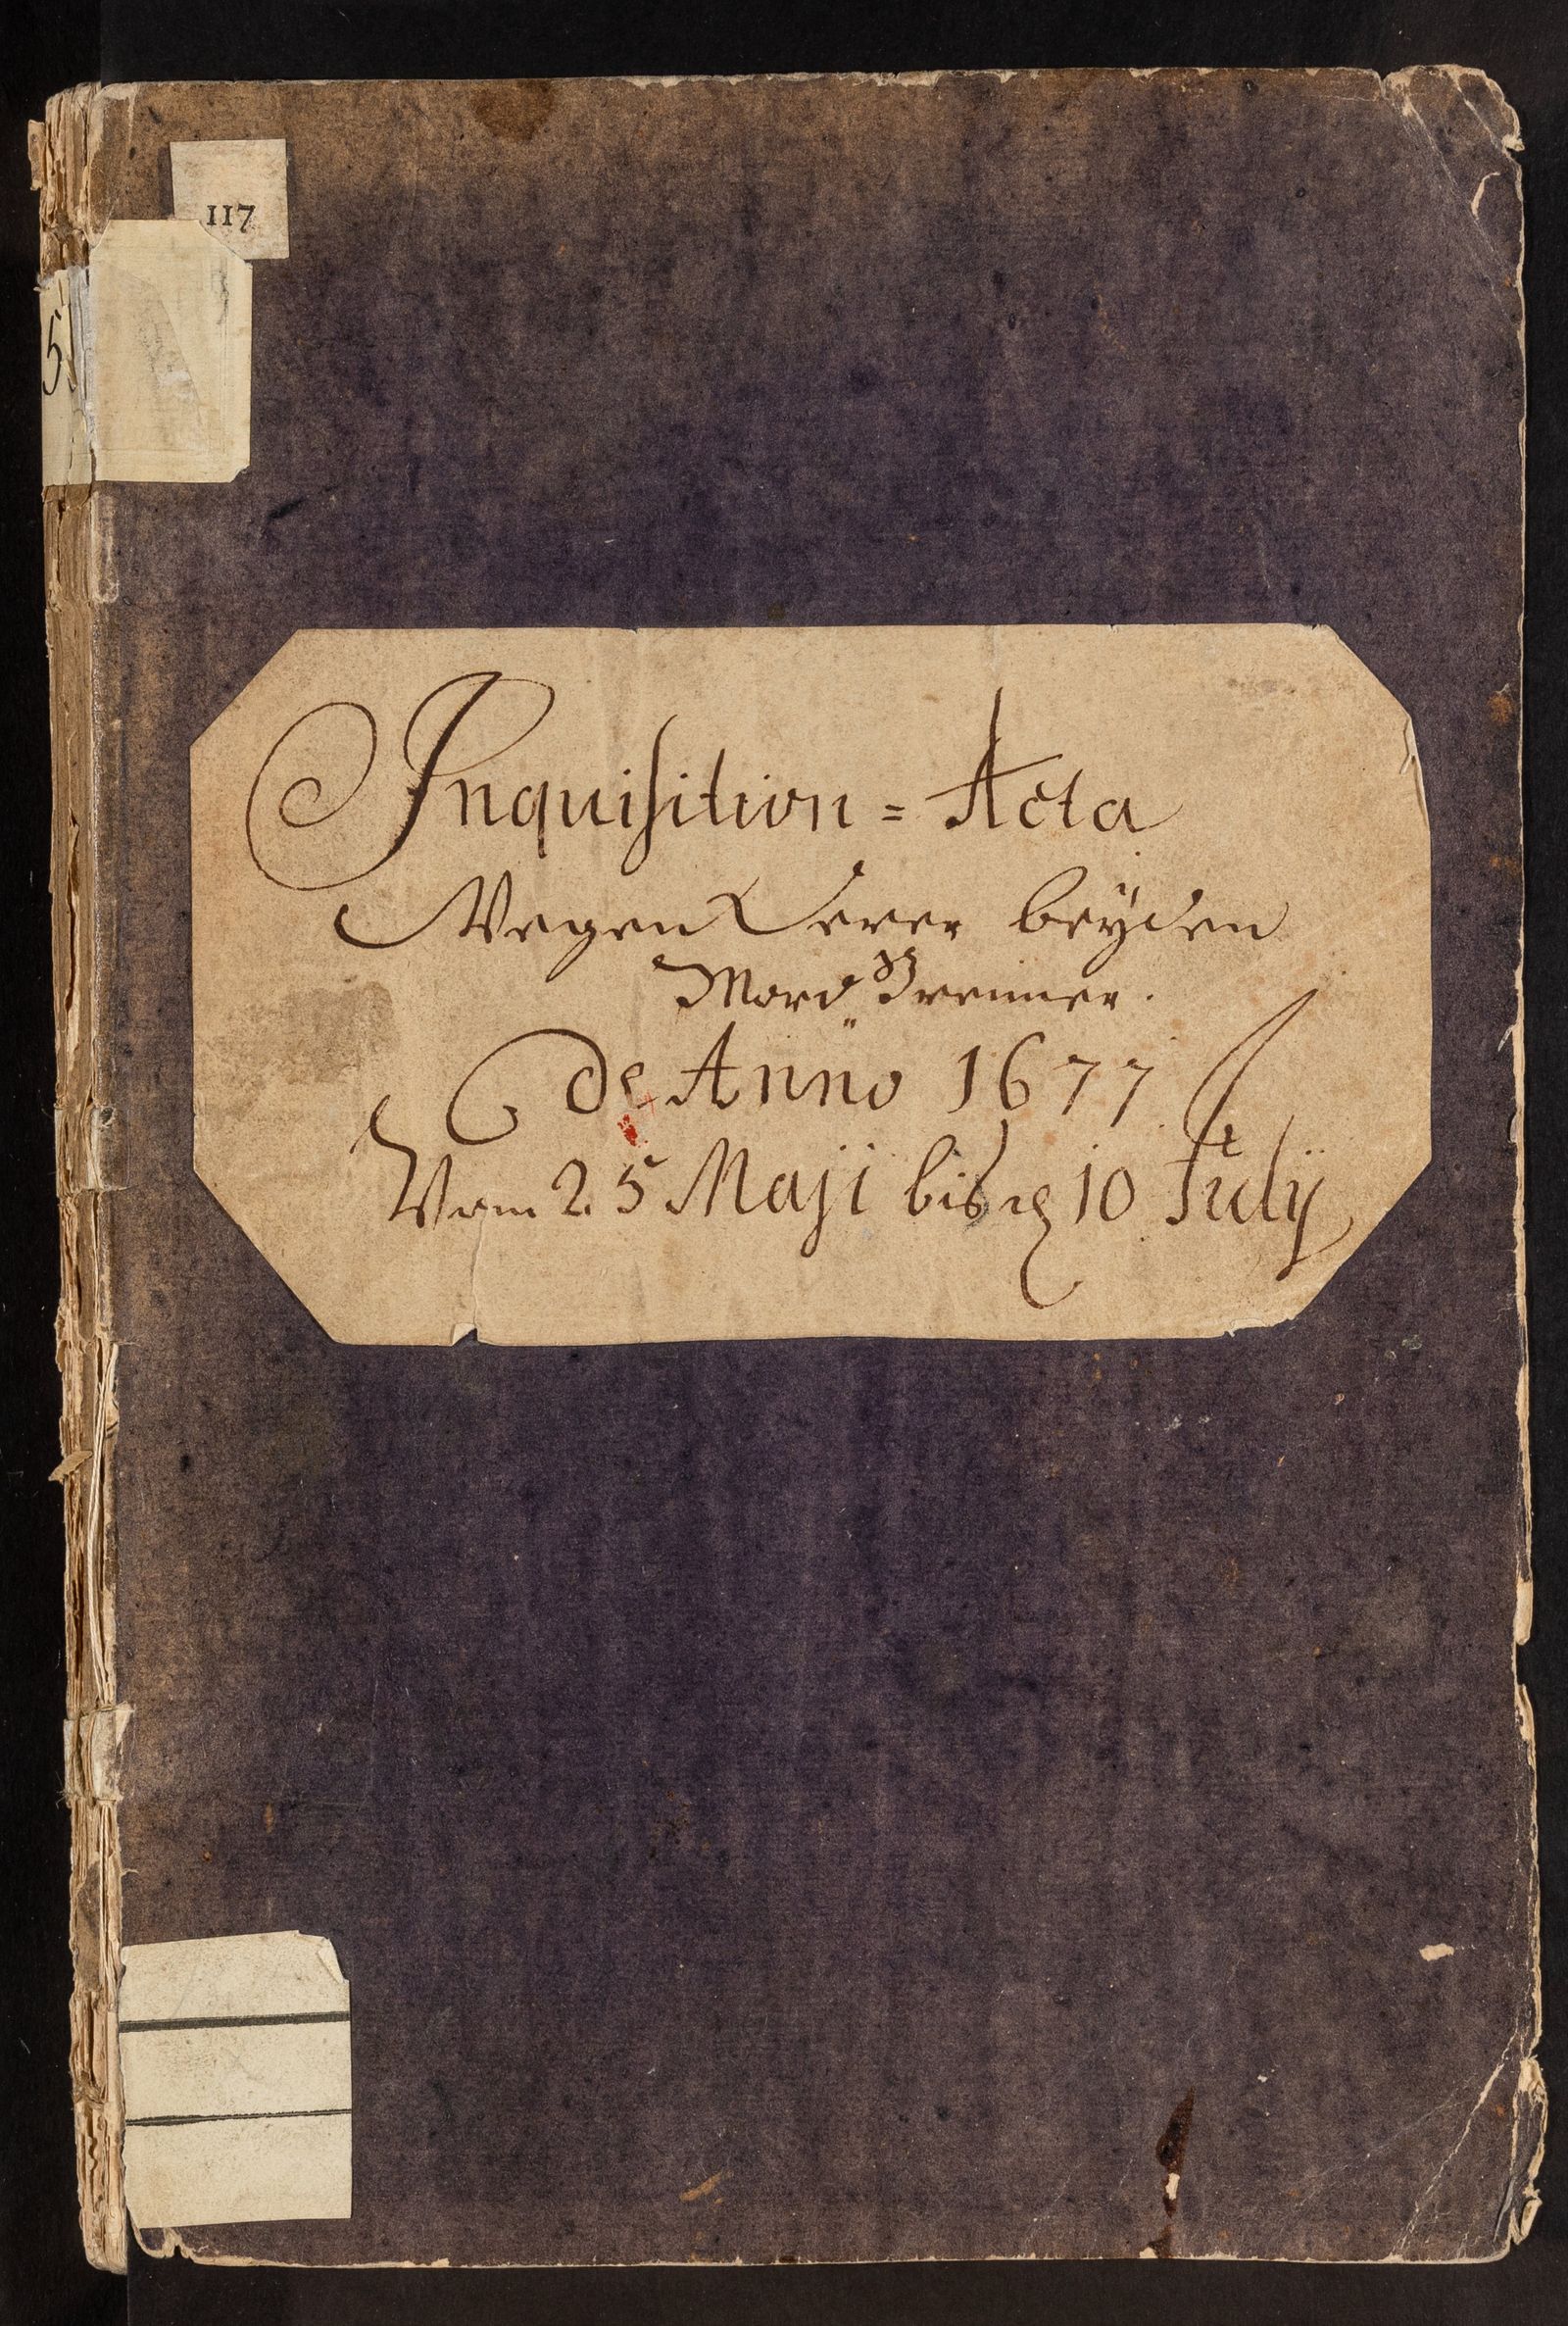 117
5
Inquisition = Acta
Wegen Derer beÿden
Mord Brenner.
de Anno 1677
Vom 25 Maji bis 10 Julÿ